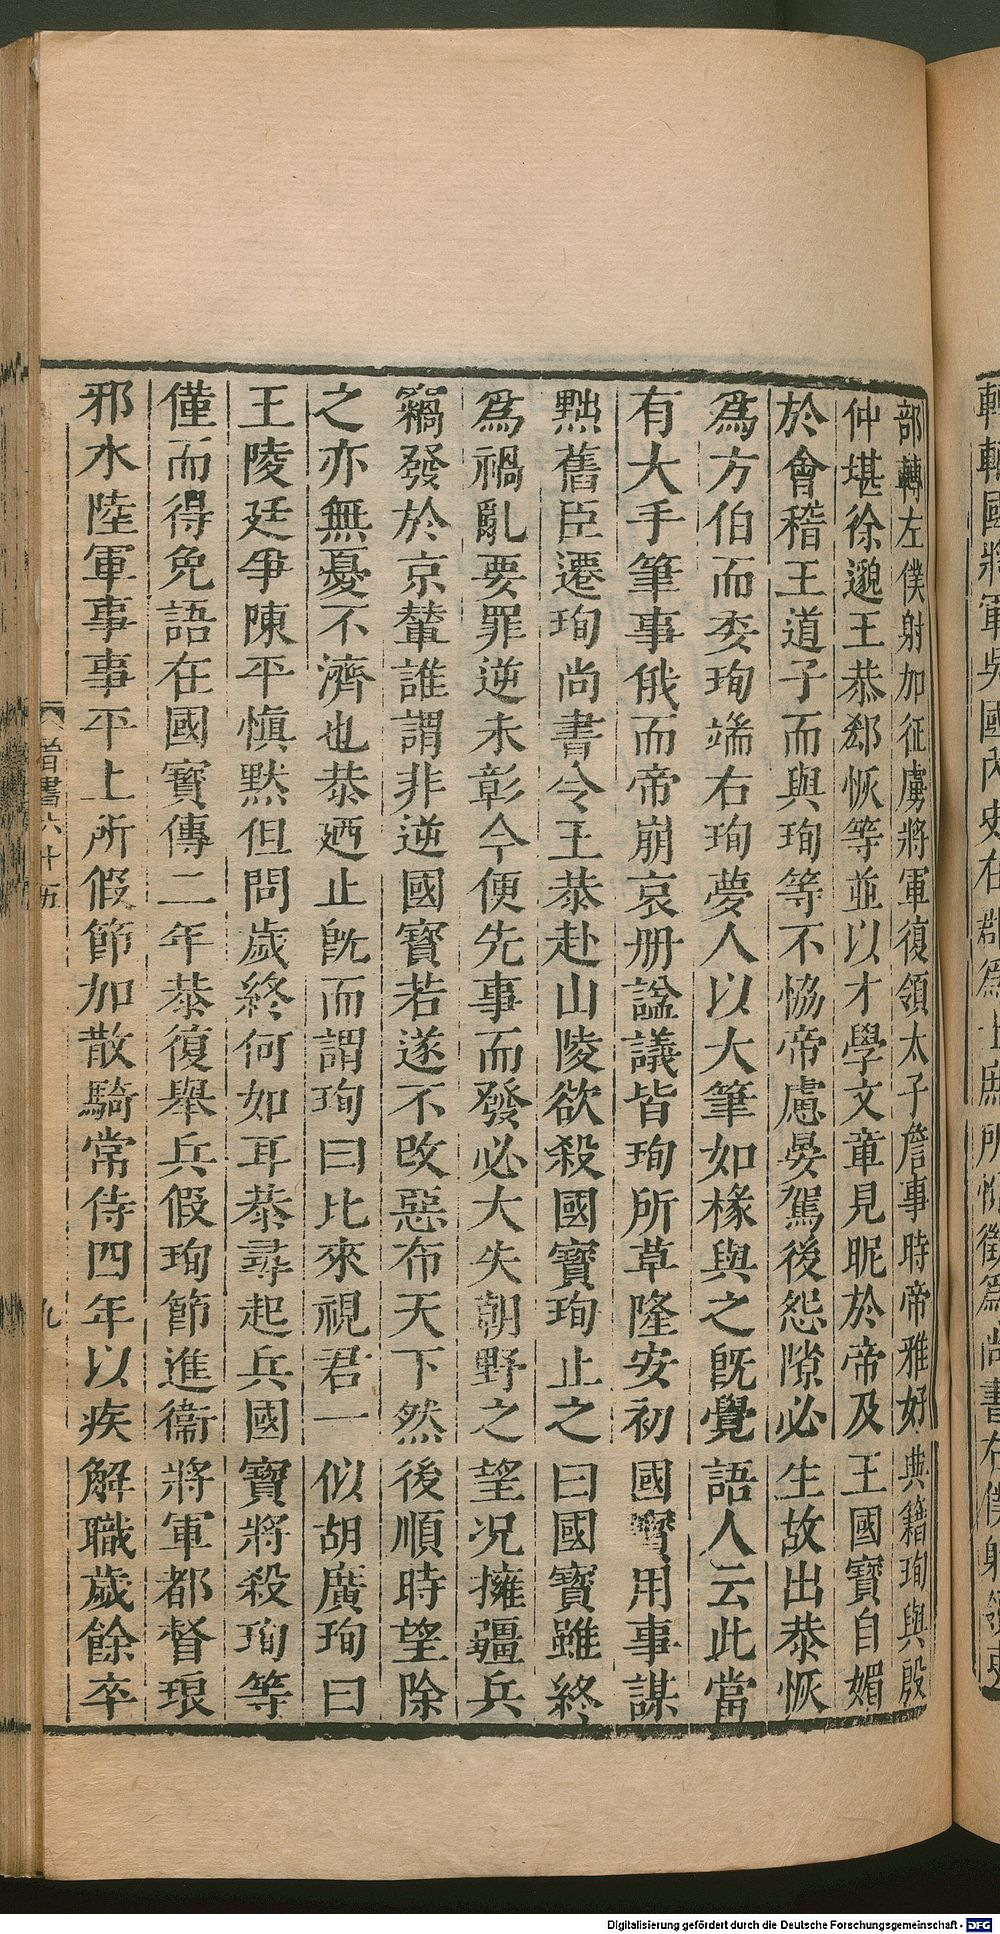 轉輔國將軍吳國內史在郡爲士庶所悅徵爲尚書右僕射領吏
部轉左僕射加征虜將軍復領太子詹事時帝雅好典籍珣與殷
仲堪徐邈王恭郄恢等並以才學文章見昵於帝及王國寶自媚
於會稽王道子而與珣等不恊帝慮晏駕後怨隙必生故出恭恢
爲方伯而委珣端右珣夢人以大筆如椽與之旣覺語人云此當
有大手筆事俄而帝崩哀册謚議皆珣所草隆安初國寶用事謀
黜舊臣遷珣尚書令王恭赴山陵欲殺國寶珣止之曰國寶雖終
爲禍亂要罪逆未彰今便先事而發必大失朝野之望况擁疆兵
竊發於京輦誰謂非逆國寶若遂不改惡布天下然後順時望除
之亦無憂不濟也恭廼止旣而謂珣曰比來視君一似胡廣珣曰
王陵廷爭陳平慎默但問歲終何如耳恭尋起兵國寶將殺珣等
僅而得免語在國寶傳二年恭復舉兵假珣節進衞將軍都督琅
邪水陸軍事事平上所假節加散騎常侍四年以疾解職歲餘卒
晉書六十五 九
Digitalisierung gefördert durch die Deutsche Forschungsgemeinschaft - DFG